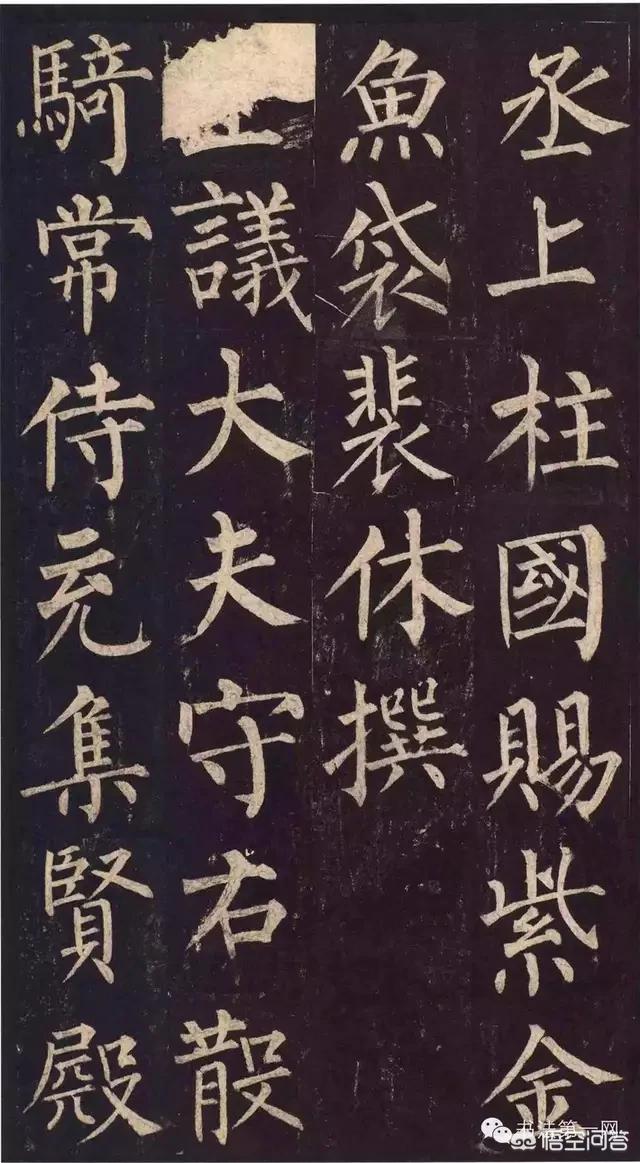 丞上柱國賜紫金
魚袋裴休撰
議大夫守右散
騎常侍充集賢殿
书法第一网
悟空问答